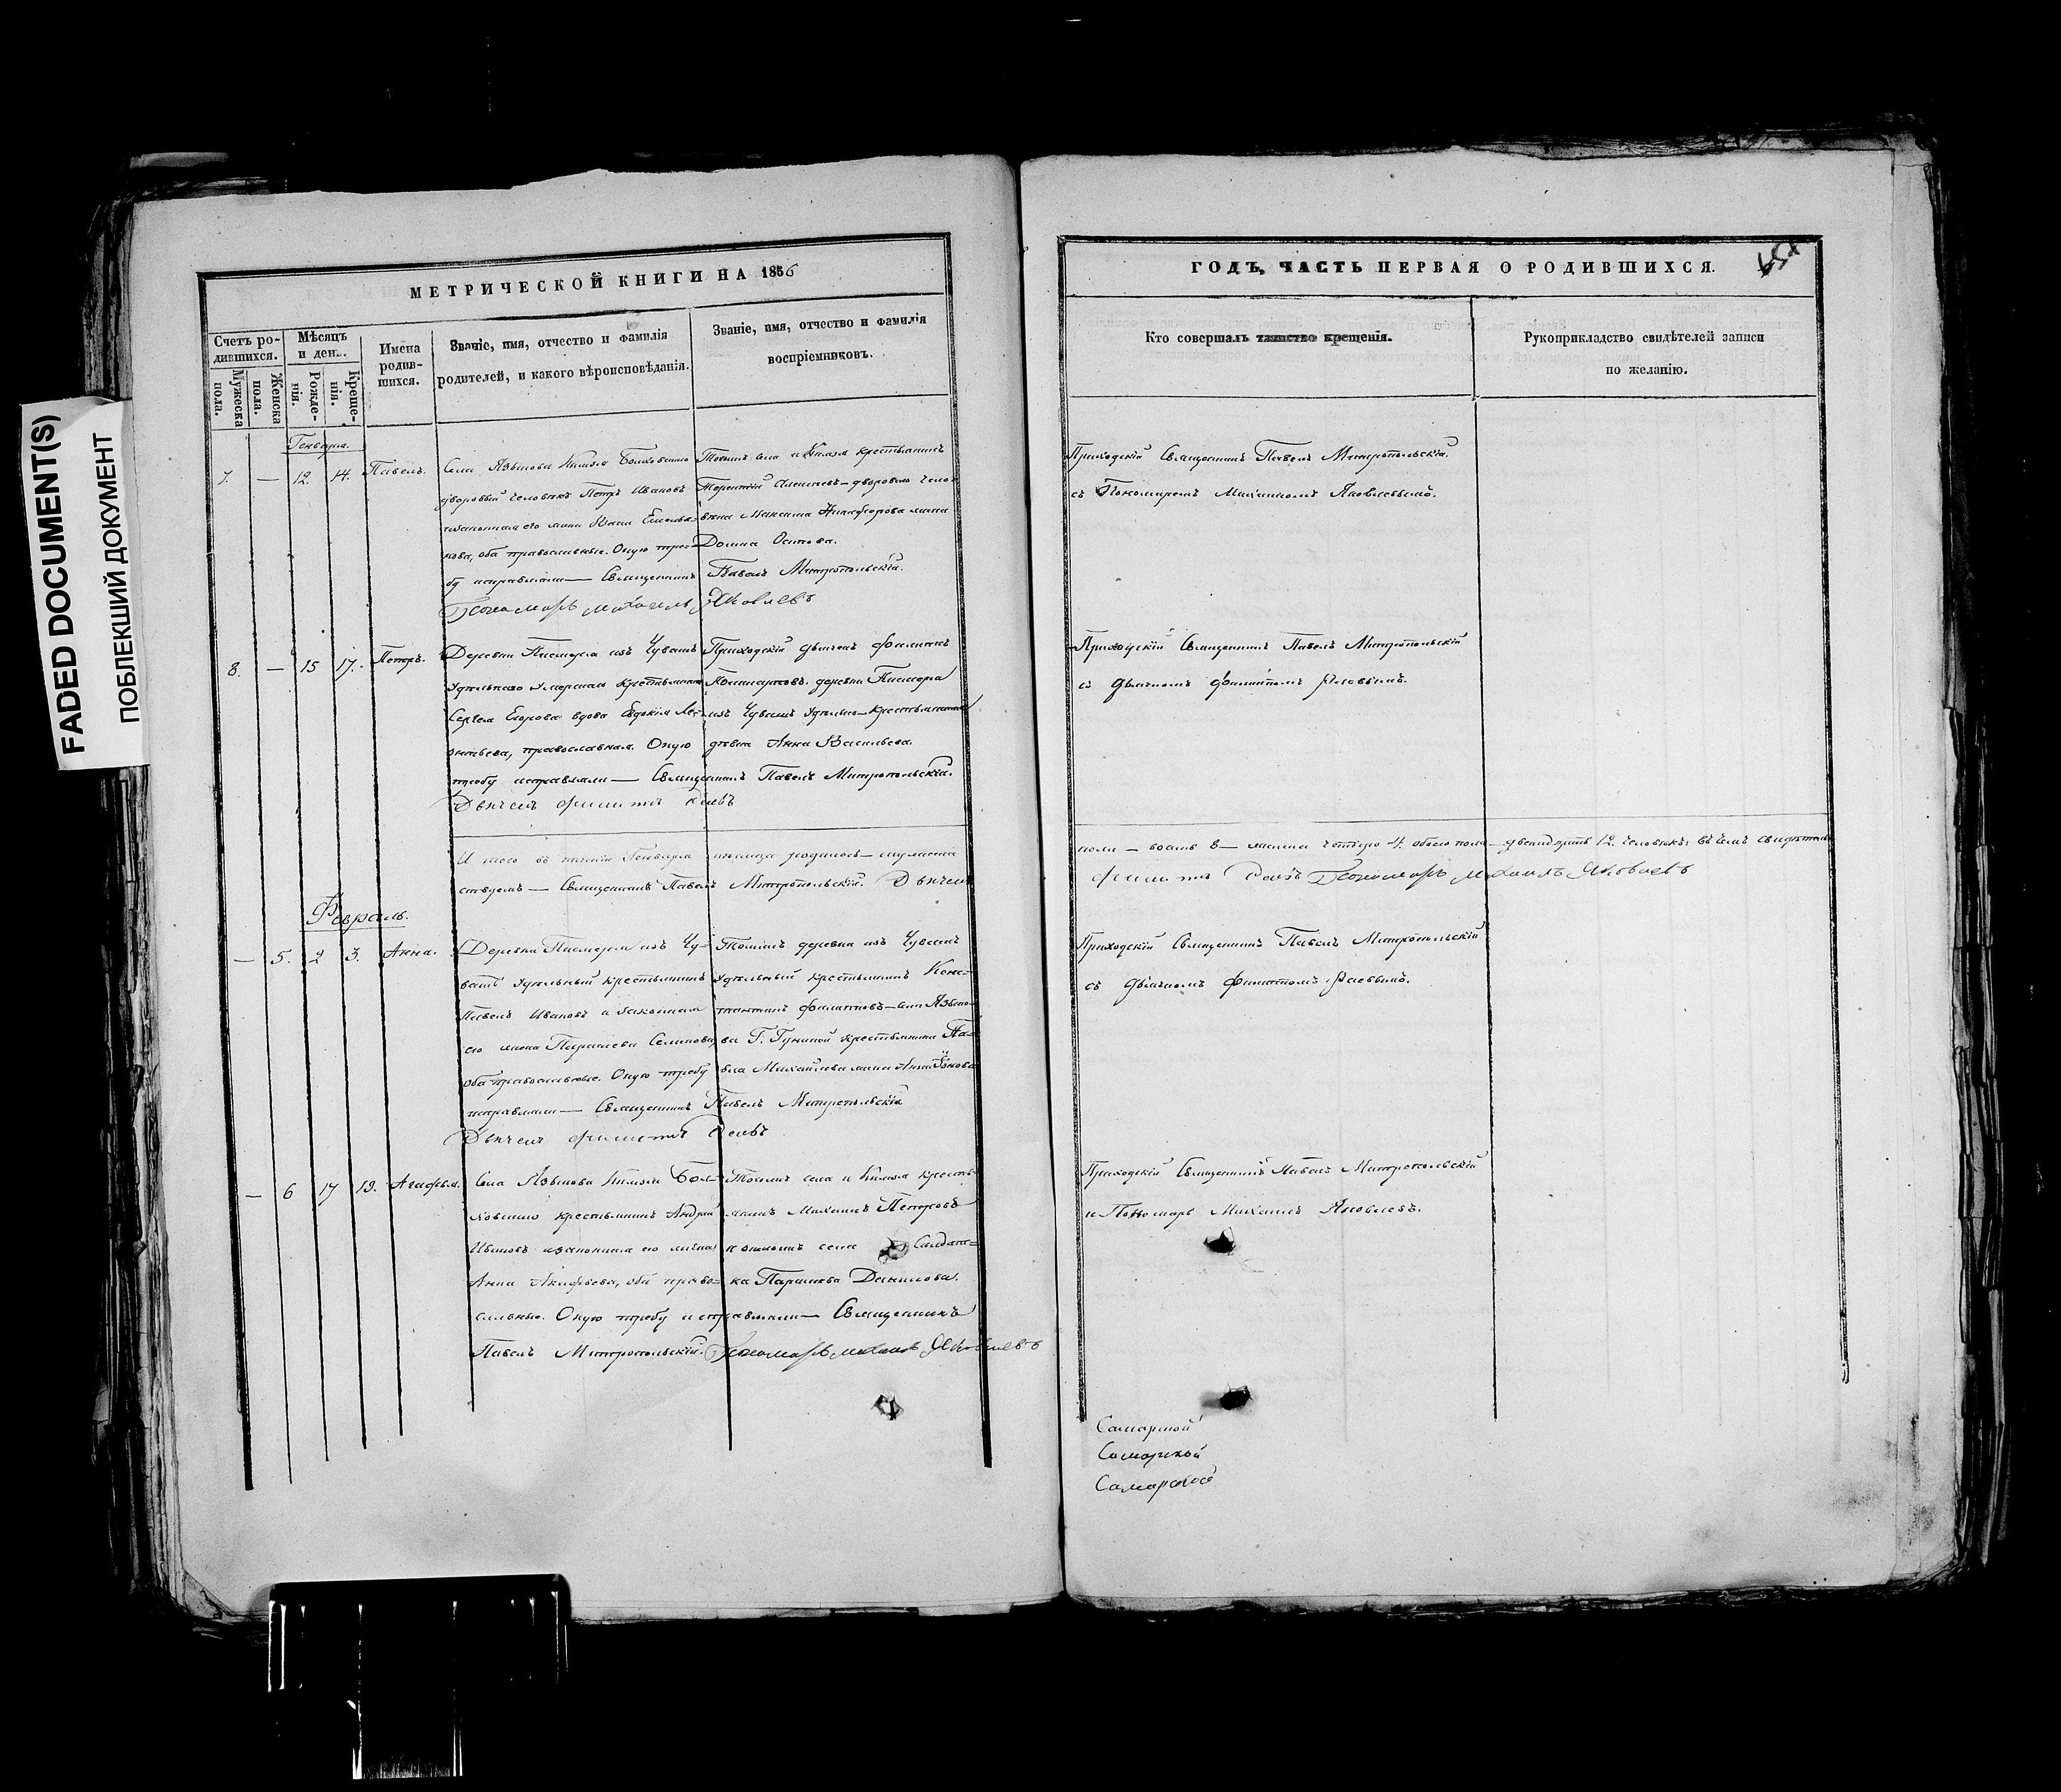 FADED DOCUMENT(S)
ПОБЛЕКШИЙ ДОКУМЕНТ
МЕТРИЧЕСКОЙ КНИГИ НА 1856
Счетъ ро-
дившихся.
Мужеска
пола.
Женска
пола.
Мѣсяцъ
и день.
Рожде-
нія.
Креще-
нія.
Имена
родив-
шихся.
Званіе, имя, отчество и фамилія
родителей, и какого вѣроисповѣданія.
Званіе, имя, отчество и фамилія
воспріемниковъ.
Генваря.
7. — 12. 14. Павелъ.
Села Языкова Князя
дворовый человѣкъ Петръ Ивановъ
законная его жена Емелья-
нова, оба православные. Оную тре-
бу исправляли — Священникъ Павелъ Митропольскій.
Пономарь Михаилъ Яковлевъ
Тогожъ села и Князя крестьянинъ
Терентій Алексѣевъ — двороваго чело-
вѣка Максима Никифорова жена
Домна Осипова.
8. — 15 17. Петръ.
Деревни Писмера изъ Чувашъ
Удѣльнаго умершаго крестьянина
Сергея Егорова вдова Евдокія Ле-
онтьева, православная. Оную
требу исправляли — Священникъ Павелъ Митропольскій.
Дьячекъ Филиппъ
Приходскій дьячекъ Филиппъ
деревни Писмера
изъ Чувашъ Удѣльно-крестьянская
дѣвка Анна Васильева.
И того въ теченіи Генваря мѣсяца родилось — мужеска
ствуемъ — Священникъ Павелъ Митропольскій. Дьячекъ
Февраль.
— 5. 2 3. Анна.
Деревни Писмера изъ Чу-
вашъ Удѣльный крестьянинъ
Павелъ Ивановъ и законная
его жена Парасковья Семенова,
оба православные. Оную требу
исправляли — Священникъ Павелъ Митропольскій
Дьячекъ Филиппъ
Тойжъ деревни изъ Чувашъ
Удѣльный крестьянинъ Конс-
тантинъ Филипповъ — села Языко-
ва Г. крестьянина Па-
вла Михайлова жена Анна
— 6 17 19. Агафья.
Села Языкова Князя
крестьянинъ Андрей
Ивановъ и законная его жена
Анна Акифьева, оба право-
славные. Оную требу исправляли — Священникъ
Павелъ Митропольскій. Пономарь Михаилъ Яковлевъ
Тогожъ села и Князя кресть-
янинъ Михаилъ Петровъ
села Солдат-
ка Парасковья Данилова.
ГОДЪ, ЧАСТЬ ПЕРВАЯ О РОДИВШИХСЯ.
Кто совершалъ таинство крещенія.
Рукоприкладство свидѣтелей записи
по желанію.
Приходскій Священникъ Павелъ Митропольскій
съ Пономаремъ Михаиломъ Яковлевымъ.
Приходскій Священникъ Павелъ Митропольскій
съ дьячкомъ Филиппомъ
пола — восемь 8 — женска четверо 4. обоего пола — двенадцать 12. человѣкъ: въ чемъ свидѣтель-
Филиппъ Пономарь Михаилъ Яковлевъ
Приходскій Священникъ Павелъ Митропольскій
съ дьячкомъ Филиппомъ
Приходскій Священникъ Павелъ Митропольскій
и Пономарь Михаилъ Яковлевъ.
Самарской
Самарской
Самарской